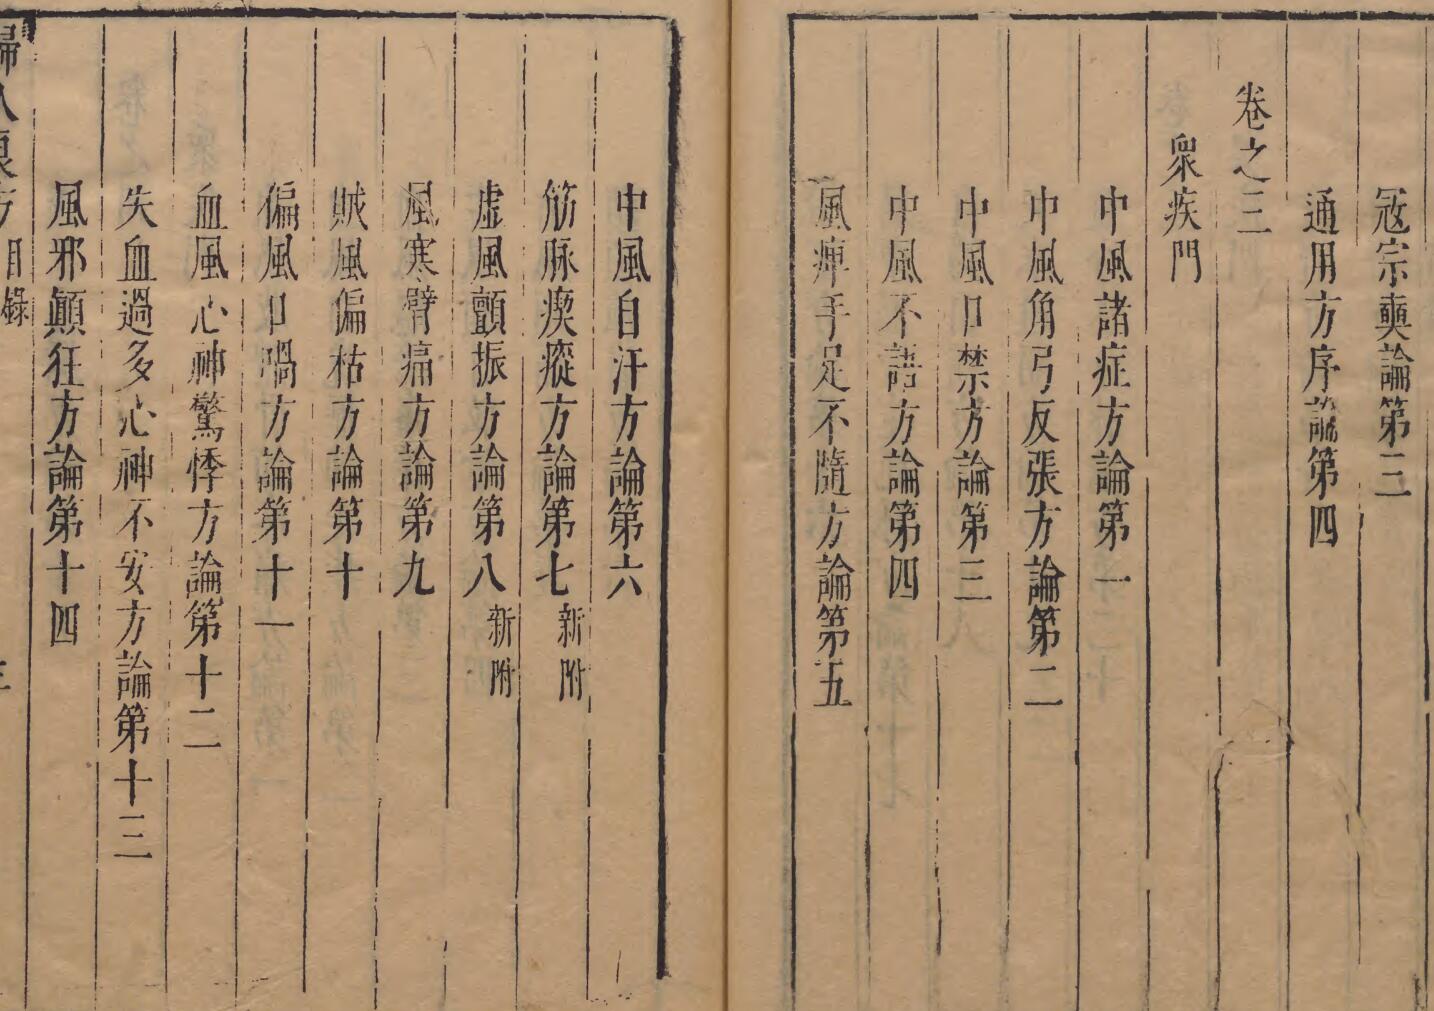 寇宗奭論第三
通用方序論第四
卷之三
衆疾門
中風諸症方論第一
中風角弓反張方論第二
中風口禁方論第三
中風不語方論第四
風痺手足不隨方論第五
中風自汗方論第六
筋脉瘈瘲方論第七新附
虚風顫振方論第八新附
風寒臂痛方論第九
賊風偏枯方論第十
偏風口喎方論第十一
血風心神驚悸方論第十二
失血過多心神不安方論第十三
風邪顚狂方論第十四
婦人良方 目錄 三